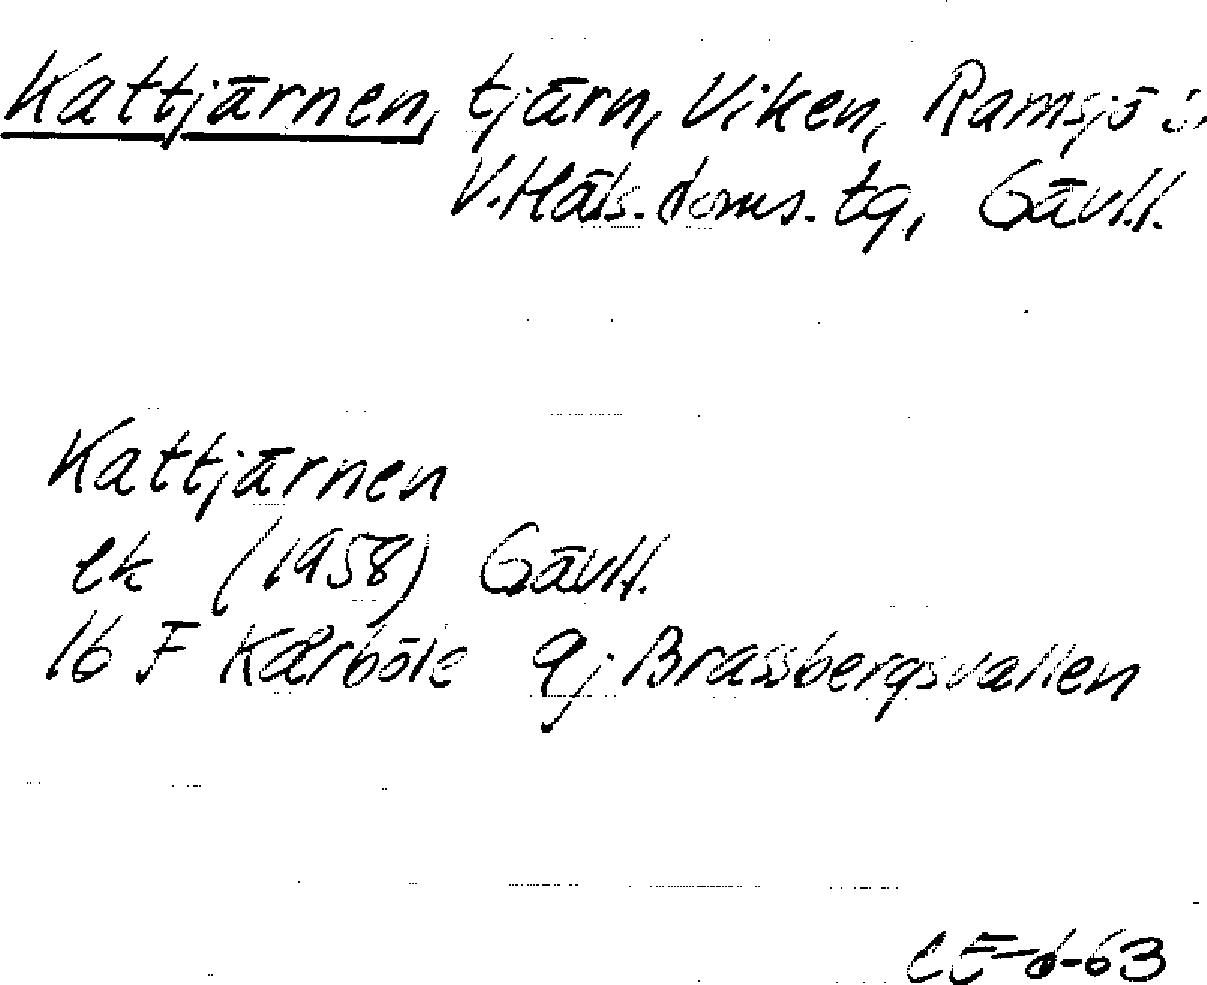 Kattjärnen, tjärn, Viken, Ramsjö s.
V. Häls. doms. tg, Gävl.l.
Kattjärnen
ek (1958) Gävl.l.
16 F Kårböle 9j Brassbergsvallen
CE-6-63